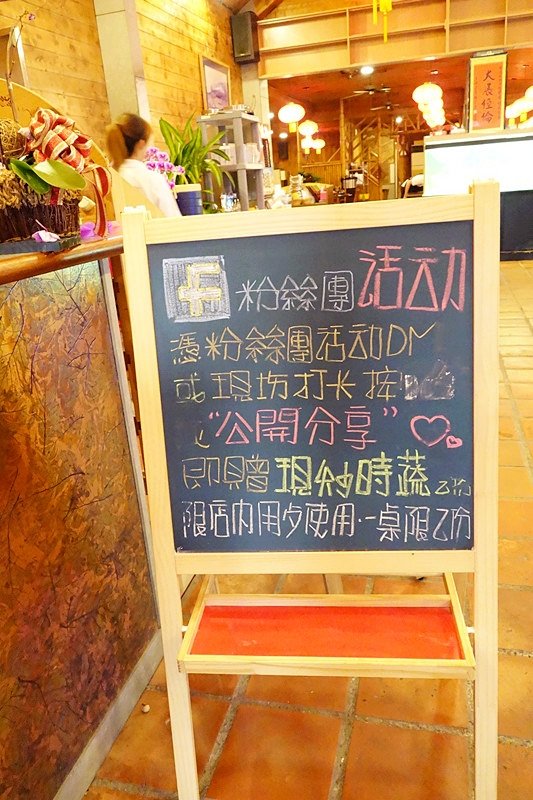 F 粉絲團活动
憑粉絲團活动DM
或現场打卡按
"公開分享"
即贈現炒時蔬乙份
限店内用夕使用·一桌限乙份